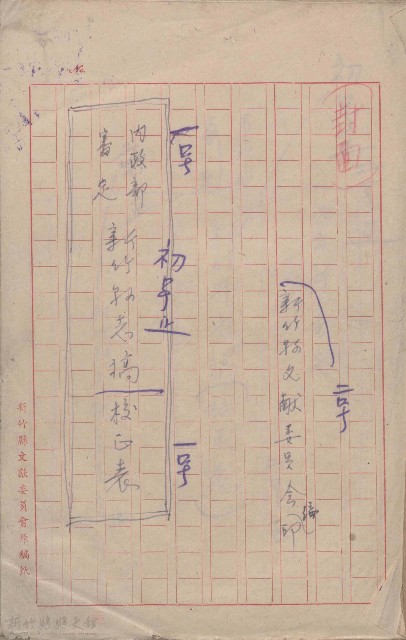 封面
新竹縣文獻委員會編印
二号
一号
初字止
一号
內政部
審定
新竹縣志稿校正表
新竹縣文獻委員會原稿紙